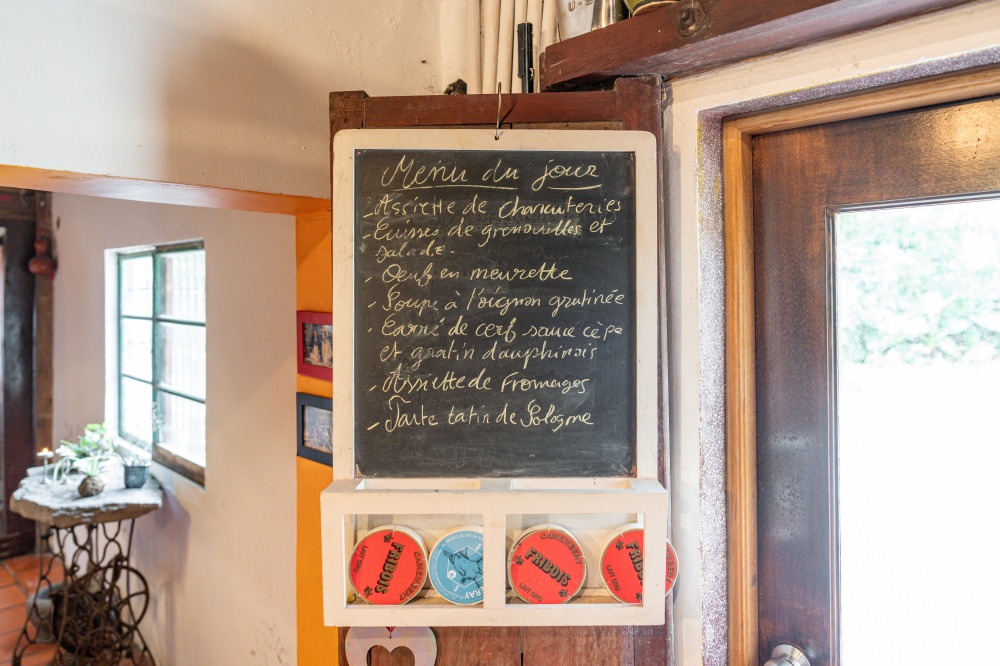 Menu du jour
- Assiette de charcuteries
- Cuisses de grenouilles et
salade.
- Oeufs en meurette
- Soupe à l'oignon gratinée
- Carré de cerf sauce cèpe
et gratin dauphinois
- Assiette de Fromages
- Tarte tatin de Sologne
CAMEMBERT
FRIBOIS
LAIT CRU
CAMEMBERT
FRIBOIS
LAIT CRU
FRIBOIS
LAIT CRU